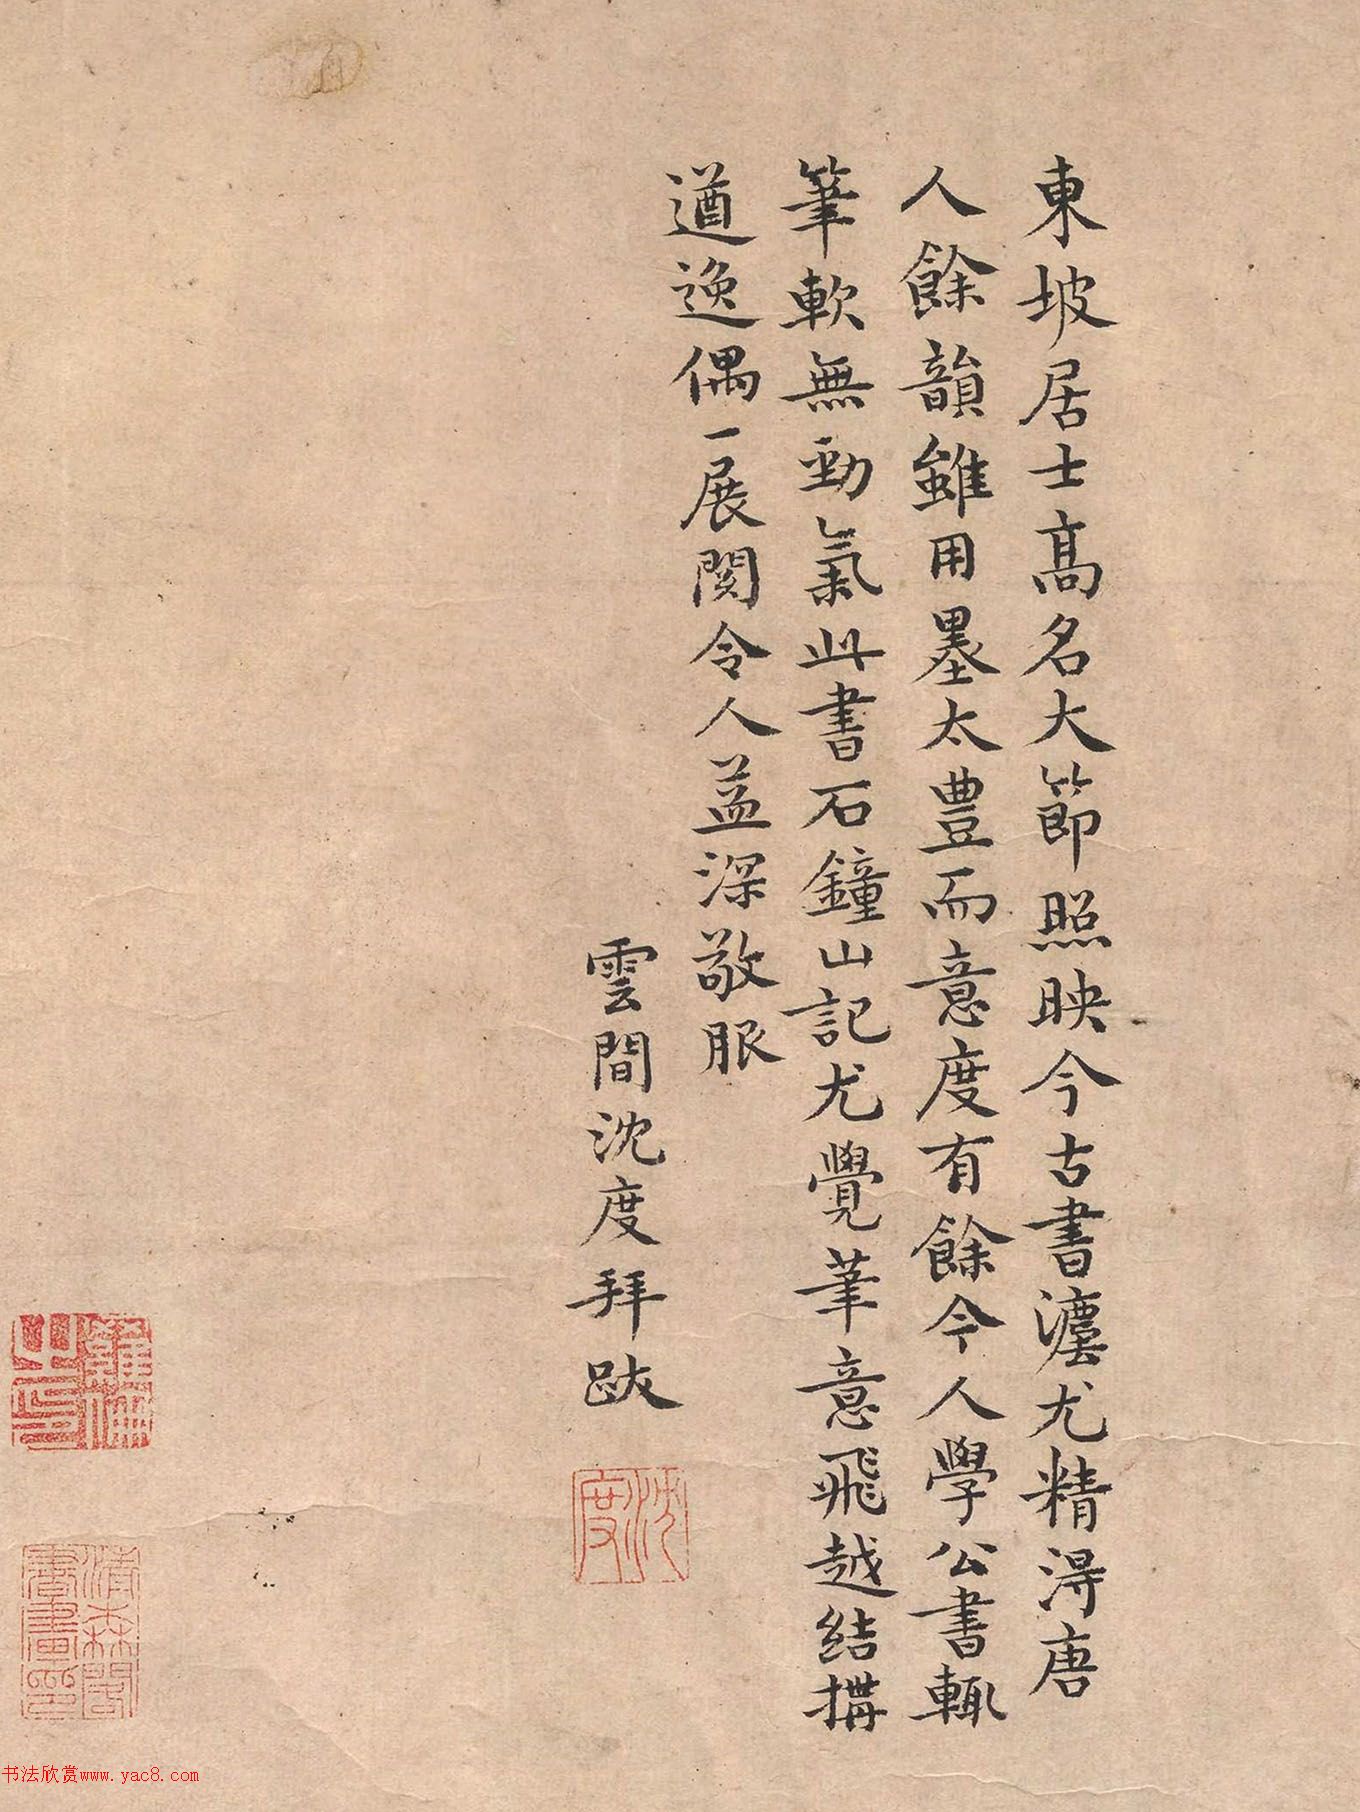 東坡居士髙名大節照映今古書灋尤精淂唐
人餘韻雖用墨太豊而意度有餘今人學公書輒
筆軟無勁氣此書石鐘山記尤覺筆意飛越結搆
遒逸偶一展閱令人益深敬服
雲間沈度拜跋
沈度
清森閣書畫印
书法欣赏www.yac8.com